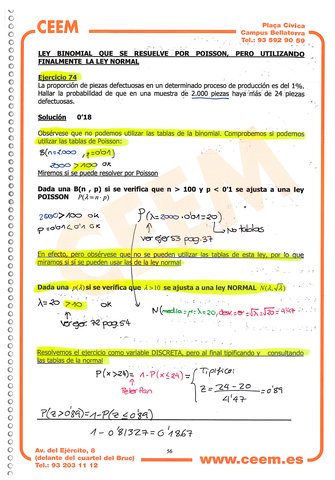 CEEM
Plaça Cívica
Campus Bellaterra
Tel.: 93 592 90 59
LEY BINOMIAL QUE SE RESUELVE POR POISSON, PERO UTILIZANDO
FINALMENTE LA LEY NORMAL
Ejercicio 74
La proporción de piezas defectuosas en un determinado proceso de producción es del 1%.
Hallar la probabilidad de que en una muestra de 2.000 piezas haya más de 24 piezas
defectuosas.
Solución 0'18
Obsérvese que no podemos utilizar las tablas de la binomial. Comprobemos si podemos
utilizar las tablas de Poisson:
B(n=2000, p=0'01)
2000 > 100 OK
Miremos si se puede resolver por Poisson
Dada una B(n , p) si se verifica que n > 100 y p < 0'1 se ajusta a una ley
POISSON P(λ=n·p)
2000 > 100 OK
P(λ=2000·0'01=20)
p=0'01<0'1 OK
No tablas
ver ejer 53 pag.37
En efecto, pero obsérvese que no se pueden utilizar las tablas de esta ley, por lo que
miramos si si se pueden usar las de la ley normal
Dada una p(λ) si se verifica que λ>10 se ajusta a una ley NORMAL N(λ,√λ)
λ=20 >10 OK
N(media=μ=λ=20, desv=σ=√λ=√20=4'47
ver ejer 72 pag.54
Resolvemos el ejercicio como variable DISCRETA, pero al final tipificando y consultando
las tablas de la normal
P(x>24) = 1-P(x≤24) = Tipificar:
Z = 24-20 / 4'47 = 0'89
P(Z>0'89)=1-P(Z≤0'89)
1-0'81327=0'1867
Av. del Ejército, 8
(delante del cuartel del Bruc)
Tel.: 93 203 11 12
56
www.ceem.es